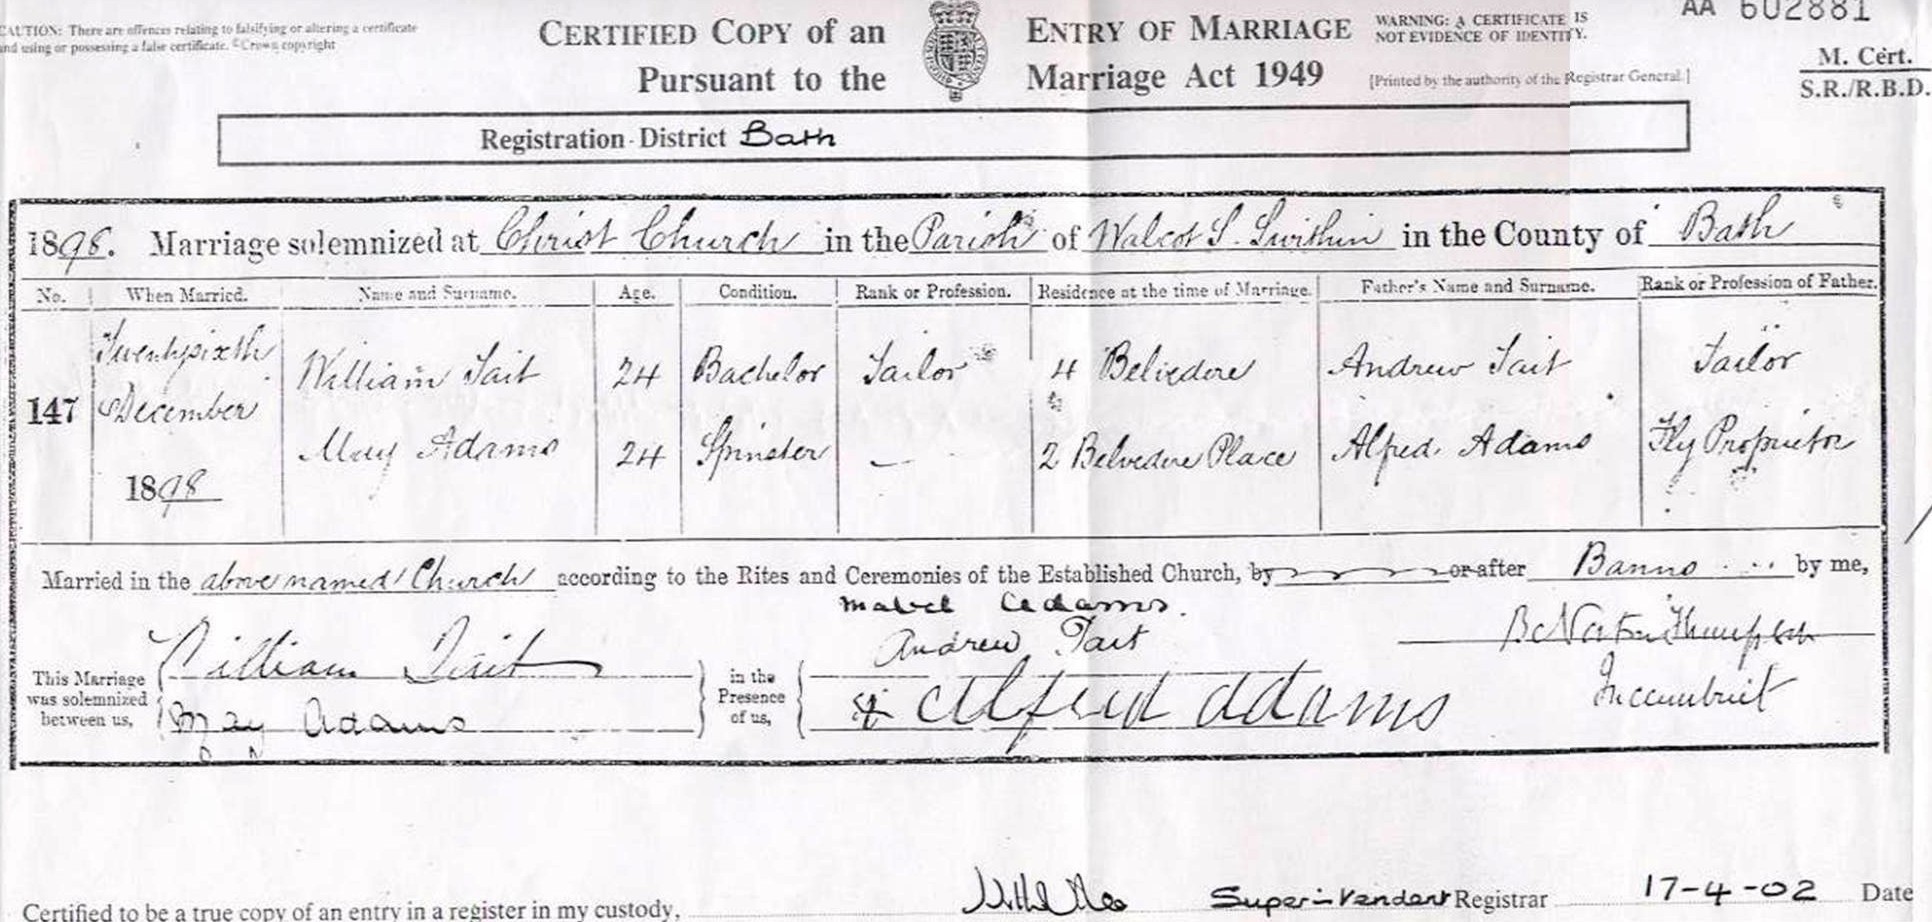 CAUTION: There are offences relating to falsifying or altering a certificate
and using or possessing a false certificate. ©Crown copyright
CERTIFIED COPY of an ENTRY OF MARRIAGE
Pursuant to the Marriage Act 1949
WARNING: A CERTIFICATE IS
NOT EVIDENCE OF IDENTITY.
[Printed by the authority of the Registrar General.]
AA 602881
M. Cert.
S.R./R.B.D.
Registration District Bath
1898. Marriage solemnized at Christ Church in the Parish of Walcot S. Swithin in the County of Bath
No. When Married. Name and Surname. Age. Condition. Rank or Profession. Residence at the time of Marriage. Father's Name and Surname. Rank or Profession of Father.
147 Twentysixth December 1898
William Tait 24 Bachelor Tailor 4 Belvedere Andrew Tait Tailor
May Adams 24 Spinster — 2 Belvedere Place Alfred Adams Fly Proprietor
Married in the above named Church according to the Rites and Ceremonies of the Established Church, by or after Banns by me,
This Marriage was solemnized between us,
William Tait
May Adams
in the Presence of us,
Mabel Adams.
Andrew Tait
& Alfred Adams
Incumbent
Certified to be a true copy of an entry in a register in my custody,
Superintendent Registrar 17-4-02 Date